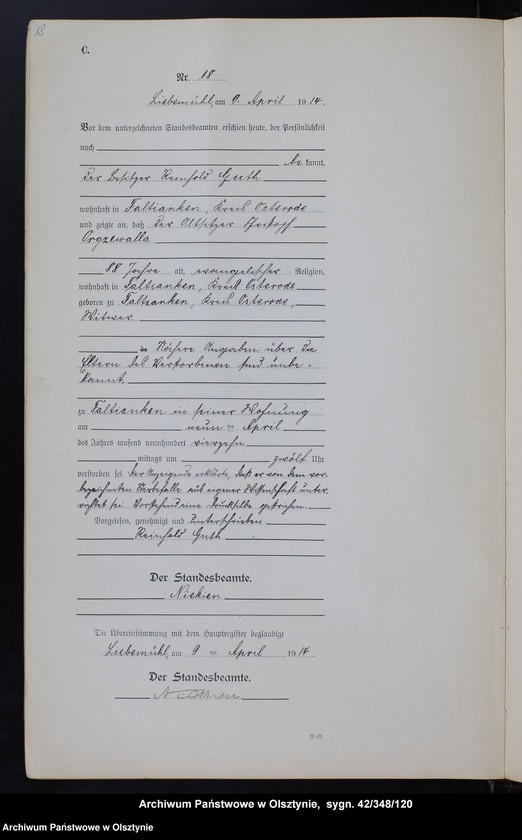 18
C.
Nr. 18
Liebemühl, am 9. April 1914.
Vor dem unterzeichneten Standesbeamten erschien heute, der Persönlichkeit
nach
be kannt,
der Besitzer Reinhold Guth
wohnhaft in Taltianken, Kreis Osterode
und zeigte an, daß der Altsitzer
88 Jahre alt, evangelischer Religion,
wohnhaft in Taltianken, Kreis Osterode
geboren zu Taltianken, Kreis Osterode,
Witwer
Nähere Angaben über die
Eltern des Verstorbenen sind unbe-
kannt,
zu Taltianken in seiner Wohnung
am neun ten April
des Jahres tausend neunhundert vierzehn
mittags um zwölf Uhr
verstorben sei. Der Anzeigende erklärte, daß er von dem vor-
bezeichneten Sterbefalle aus eigener Wissenschaft unter-
richtet sei. Vorstehend eine Drucksilbe gestrichen.
Vorgelesen, genehmigt und unterschrieben.
Reinhold Guth
Der Standesbeamte.
Die Übereinstimmung mit dem Hauptregister beglaubigt
Liebemühl, am 9 ten April 1914.
Der Standesbeamte.
Archiwum Państwowe w Olsztynie, sygn. 42/348/120
Archiwum Państwowe w Olsztynie